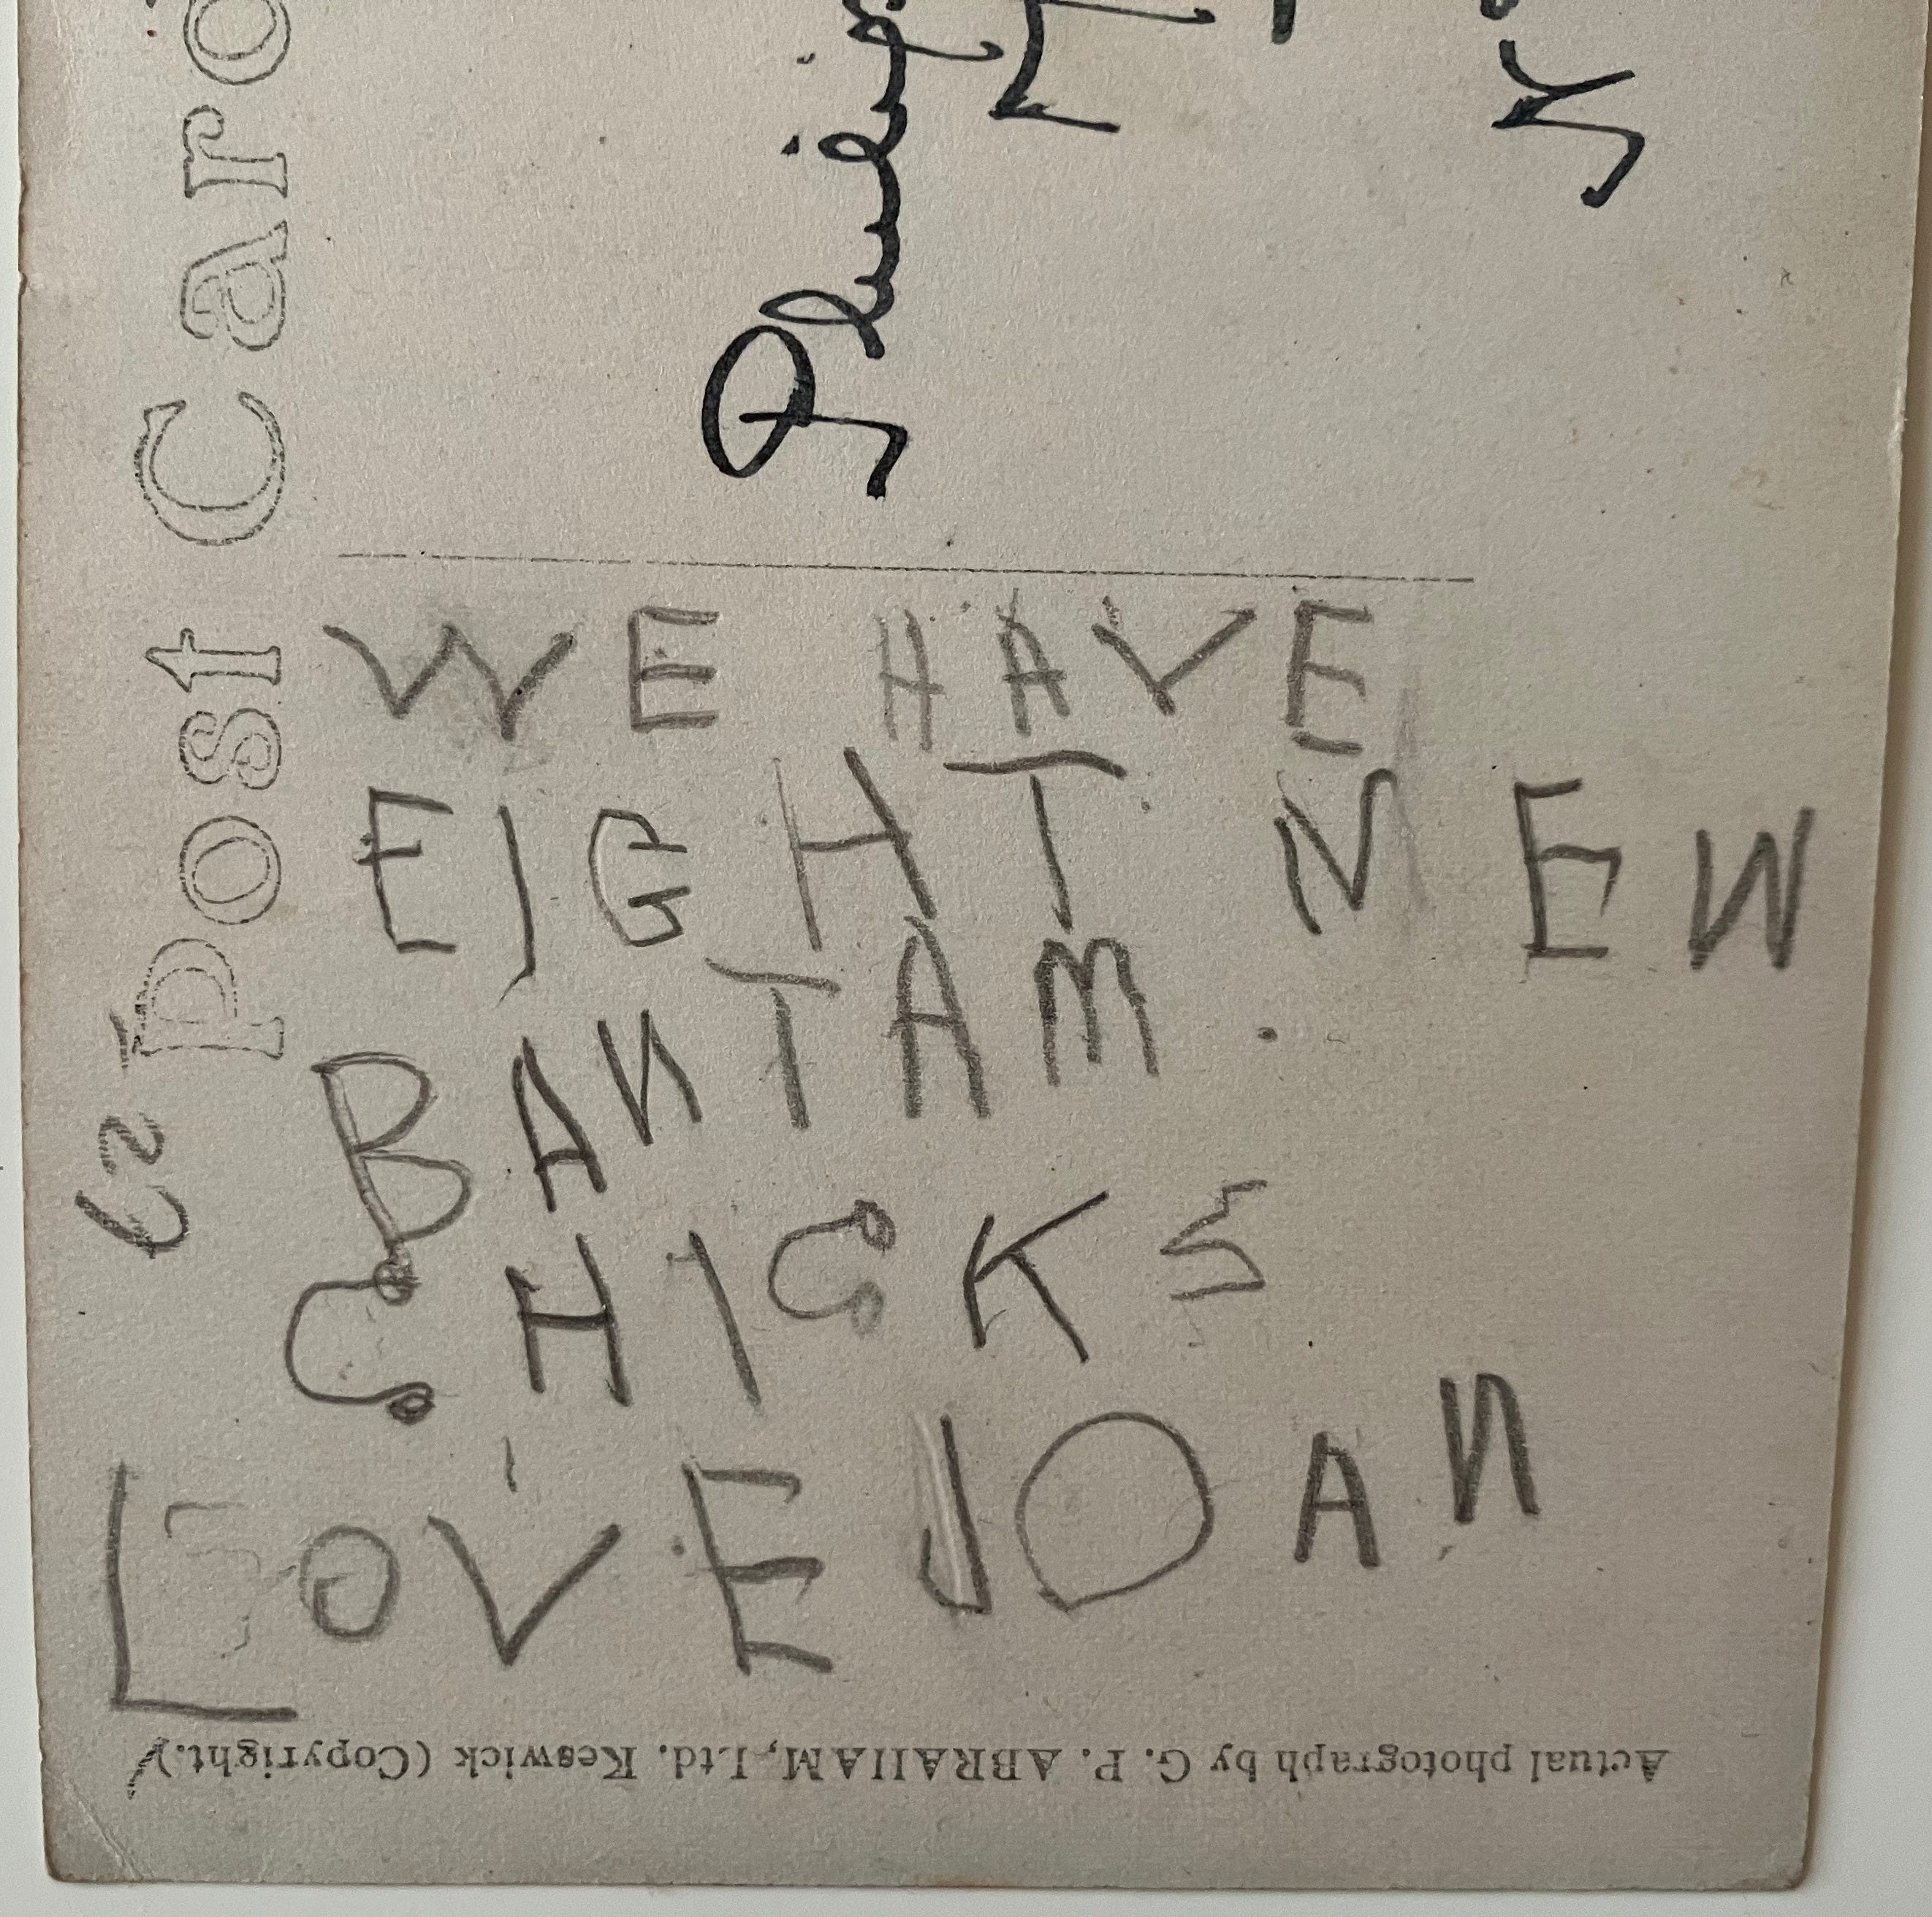 Post Card
WE HAVE
EIGHT NEW
BANTAM.
CHICKS
LOVE JOAN
Actual photograph by G. P. ABRAHAM, Ltd. Keswick (Copyright.)